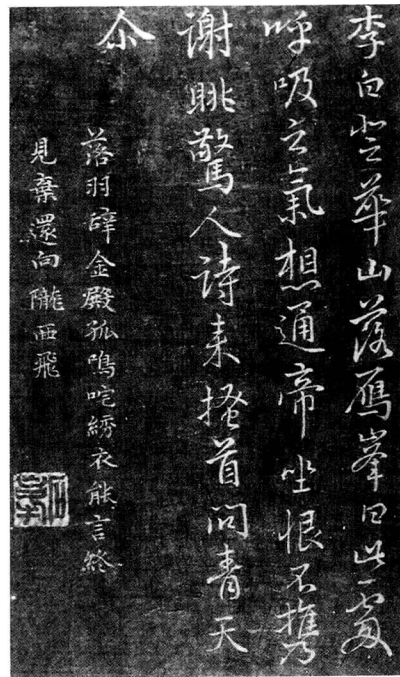 李白登華山落鴈峯曰此處
呼吸之氣想通帝坐恨不攜
謝眺驚人詩来搔首問青天
尒
落羽辭金殿孤鳴咤綉衣能言終
見棄還向隴西飛